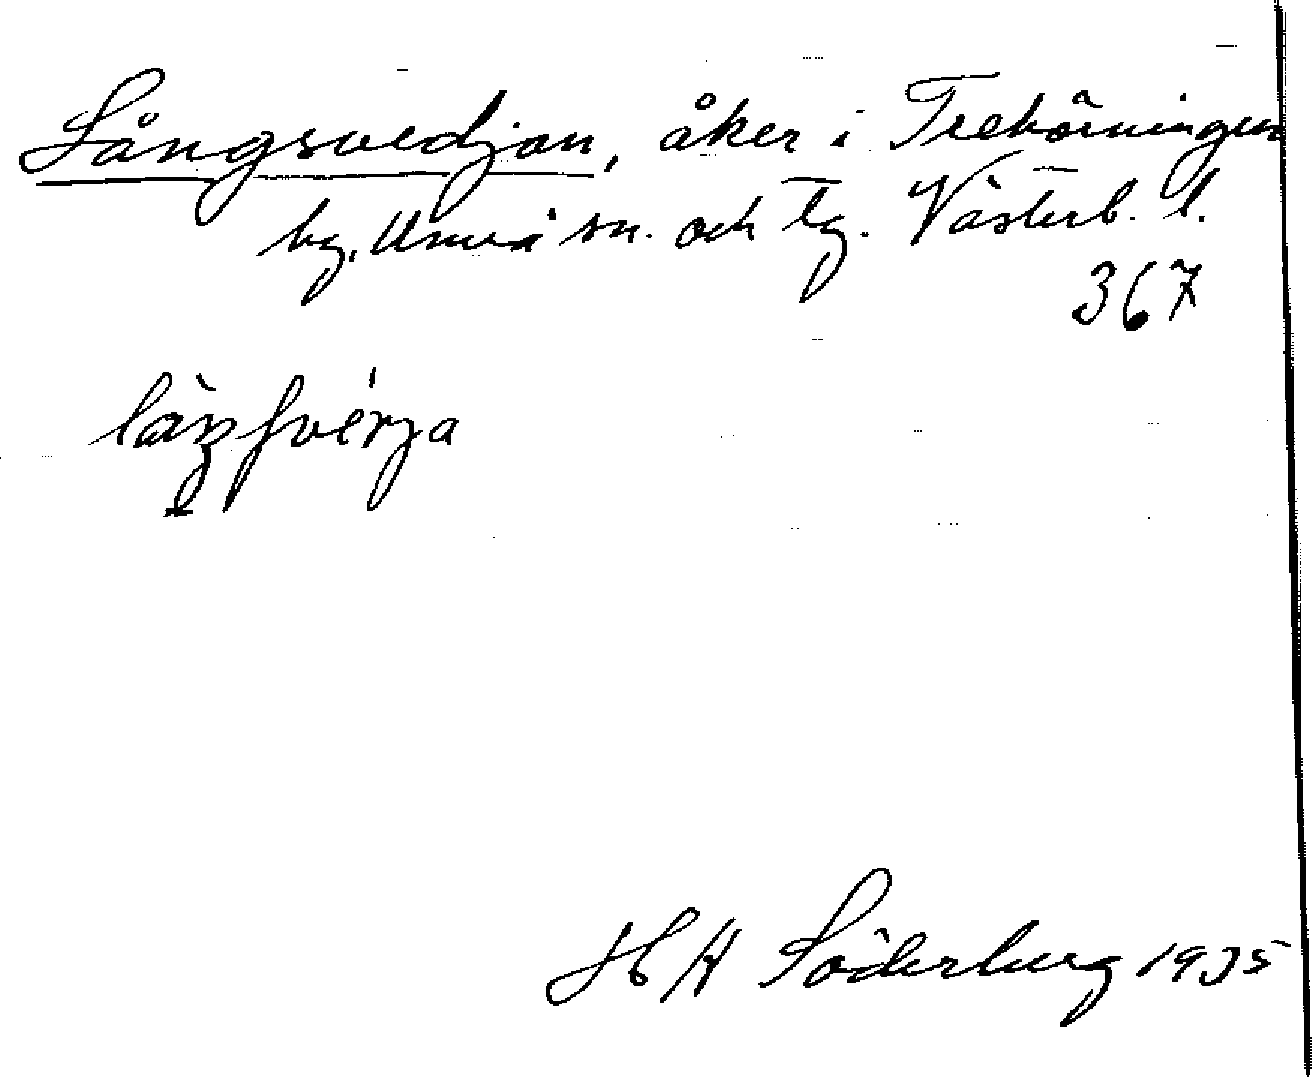 Långsvedjan, åker i Trehörningen
by, Umeå sn. och tg. Västerb. l.
367
H H Söderberg 1935